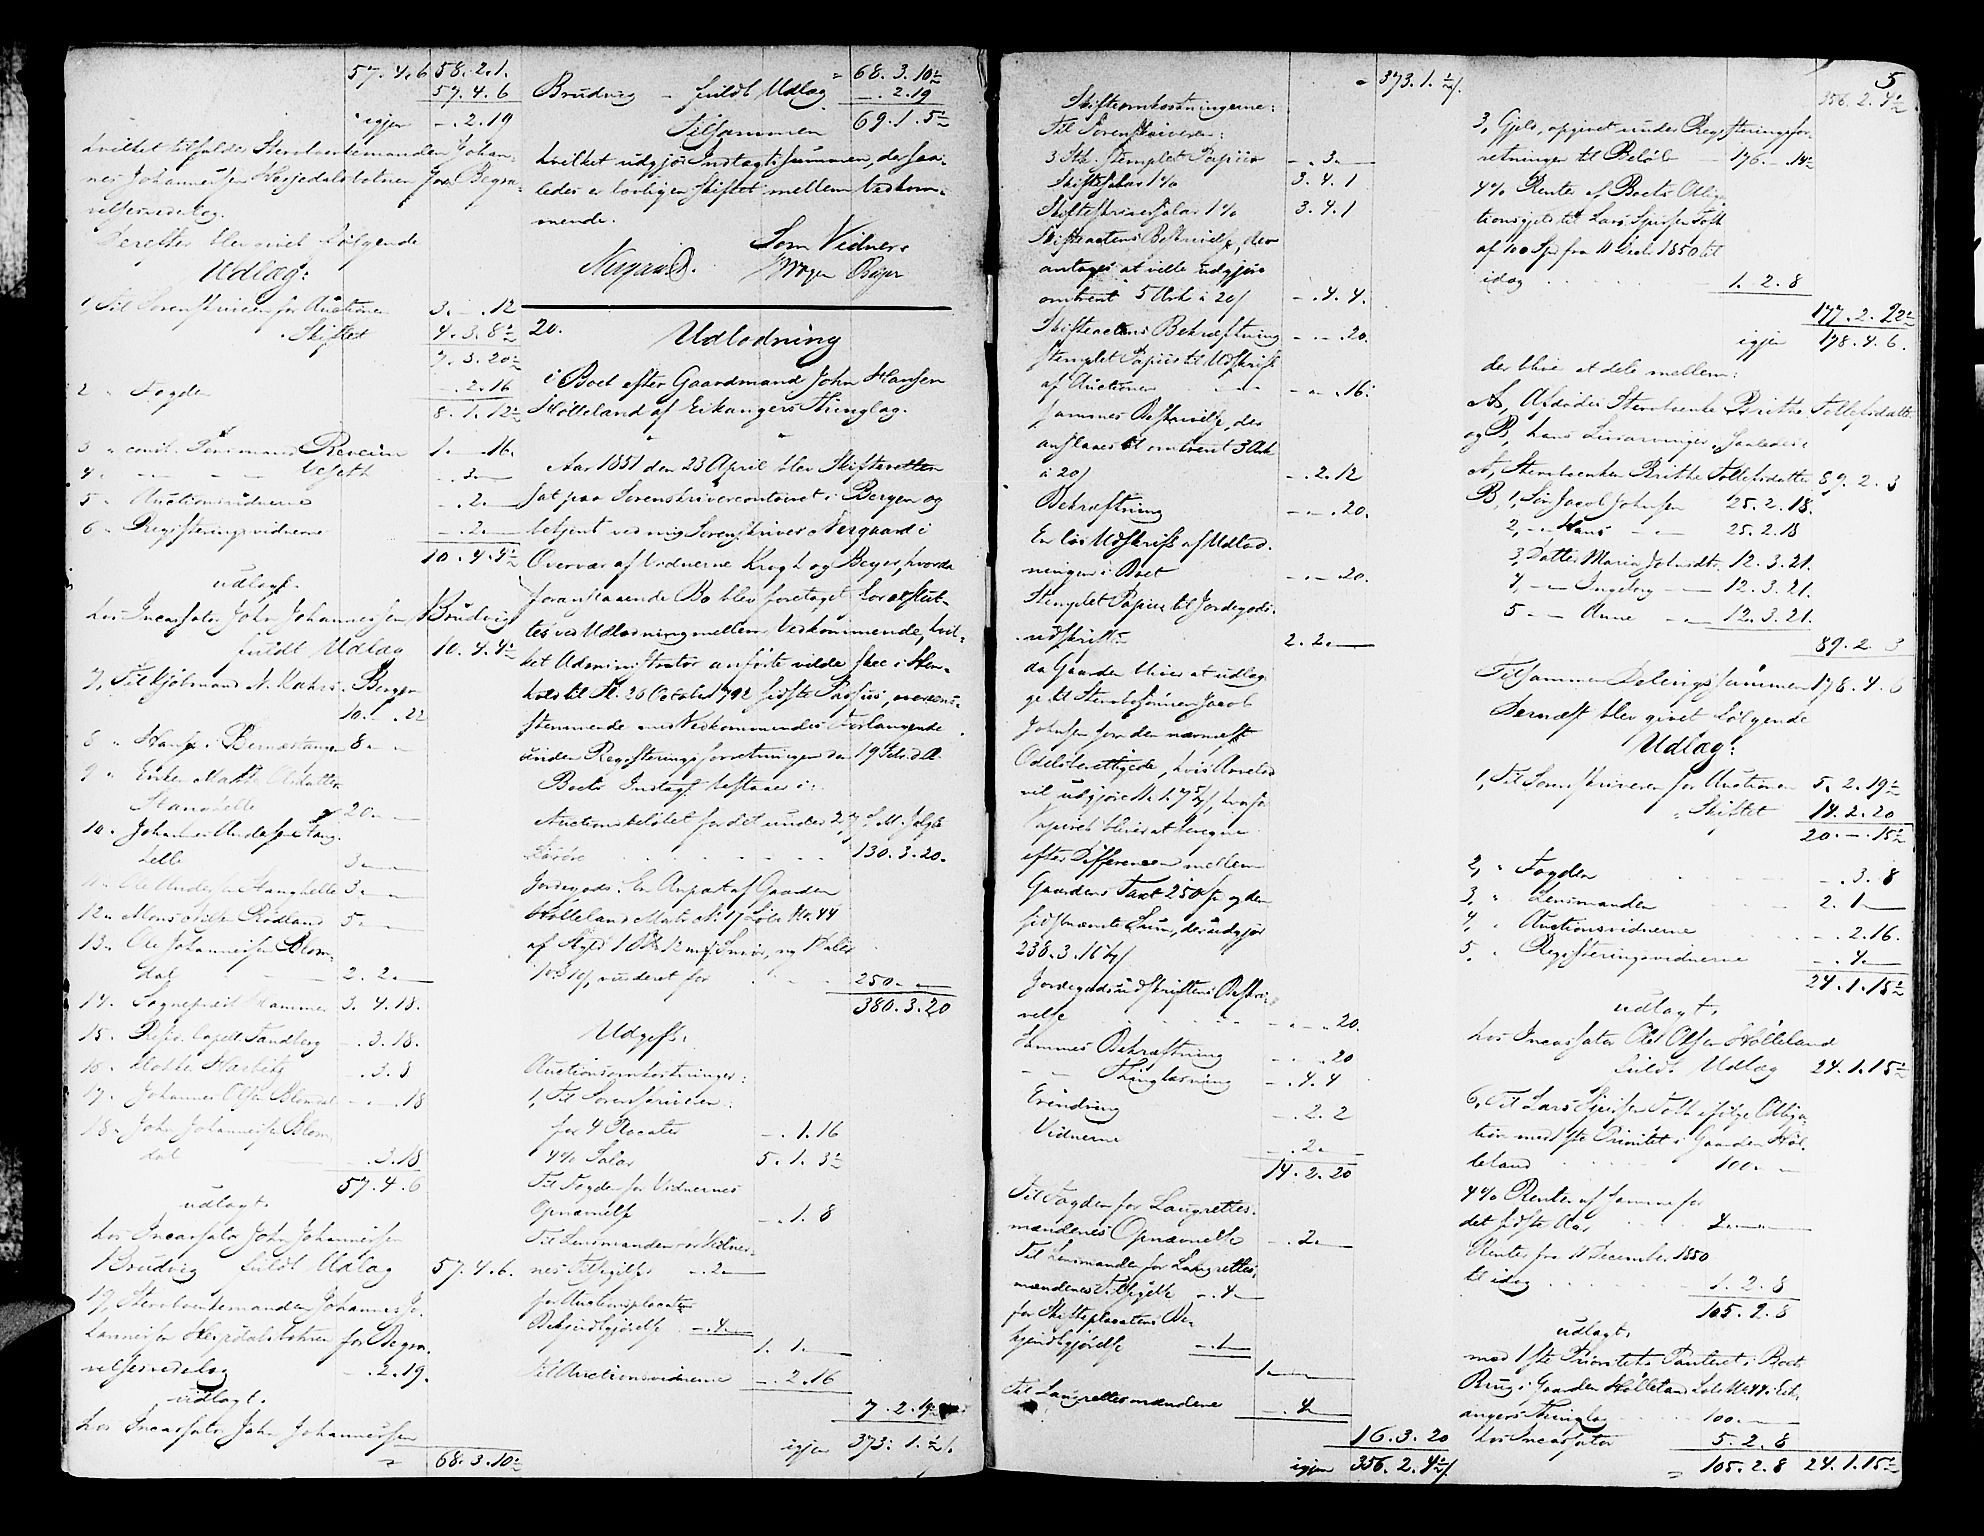 57.4.6 58.2.1.
57.4.6
igjen -.2.19
hvilket tilfalder Stervboenkemanden Johan-
nes Johannessen Hespedalsbotnen for Begra-
velsesvederlag.
Derefter blev givet følgende
Udlæg:
1, Til Sorenskriveren for Auctionen 3.-.12
" Skiftet 4.3.8½
7.3.20½
2 " Fogden -.2.16
8.1.12½
3 " const. Lensmand 1.-.16.
4 " -.3.-
5 " Auctionsvidnerne -.2.-
6 " Registreringsvidnerne -.2.-
10.4.4½
udlagt.
hos Incassator John Johannessen Brudvig
fuldt Udlæg 10.4.4½
7, Til Kjøbmand N. Bergen
10.-.22
8 " Hans 8.-.-
9 " Enken
Stanghelle 20.-.-
10. Johannes Andersen Stang-
helle 3.-.-
11. Ole Andersen Stanghelle 3.-.-
12. Mons Nilsen Rødland 5.-.-
13. Ole Johannessen Blom-
dal 2.2.-
14. Sogneprest Hammer 3.4.18.
15. Resid. Capell. Sandberg -.3.18.
16. Klokker Harbitz -.3.8
17. Johannes Olsen Blomdal -.-.18
18. John Johannessen Blom-
dal -.3.18
57.4.6
udlagt.
hos Incassator John Johannessen
Brudvig fuldt Udlæg 57.4.6.
19, Stervboenkemanden Johannes Jo-
hannessen Hespedalsbotnen for Begra-
velsesvederlag -.2.19.
udlagt.
hos Incassator John Johannessen
68.3.10½
68.3.10½
Brudvig - fuldt Udlæg -.2.19
Tilsammen 69.1.5½
hvilket udgjør Indtægtssummen, der saa-
ledes er lovligen skiftet mellem Vedkom-
mende.
Som Vidner:
Nergaard. Krogh Beyer
20. Udlodning
i Boet efter Gaardmand John Hansen
Hølleland af Eikangers Thinglag.
Aar 1851 den 23 April blev Skifteretten
sat paa Sorenskrivercontoiret i Bergen og
betjent ved mig Sorenskriver Nergaard i
Overvær af Vidnerne Krogh og Beyer, hvorda
foranstaaende Bo blev foretaget for at slut-
tes ved Udlodning mellem Vedkommende, hvil-
ket Administrator anførte vilde skee i Hen-
hold til Pl. 26 October 1792 sidste Passus, overens-
stemmende med Vedkommendes Forlangende
under Registreringsforretningen den 19 Febr. d. A.
Boets Indtægt bestaaer i:
Auctionsbeløbet for det under 27 f. M. solgte
Løsøre 130.3.20.
Jordegods: En Anpart af Gaarden
Hølleland Matr. No. 17 Løbe No. 44
af Skyld 1 12 mk Smør, ny Skyld
vurderet for 250.-.-
380.3.20
Udgift:
Auctionsomkostninger:
1, Til Sorenskriveren:
for 4 Placater -.1.16
4% Salær 5.1.3½
Til Fogden for Vidnernes
Opnævnelse -.1.8
Til Lensmanden for Vidner-
nes Tilsigelse -.2.-
for Auctionsplacaters
Bekjendtgjørelse -.4.-
1.1.-
Til Auctionsvidnerne -.2.16
7.2.19½
igjen 373.1.½
373.1.½
Skifteomkostningerne:
Til Sorenskriveren:
3 Stk. stemplet Papiir -.3.-
Skiftesalær 1% 3.4.1
Skifteskriversalær 1% 3.4.1
Skifteactens Beskrivelse, der
antages at ville udgjøre
omtrent 5 Ark à 20 -.4.4.
Skifteactens Bekræftning -.-.20.
stemplet Papiir til Udskrift
af Auctionen -.-.16.
sammes Beskrivelse, der
anslaaes til omtrent 3 Ark
à 20 -.2.12
Bekræftning -.-.20.
En løs Udskrift af Udlod-
ningen i Boet -.-.20.
Stemplet Papiir til Jordegods-
udskrift 2.2.-
da Gaarden bliver at udlæg-
ge til Stervbosønnen Jacob
Johnsen som den nærmest
Odelsberettigede, hvis Arvelod
vil udgjøre hvorfor
Papiret bliver at beregne
efter Differencen mellem
Gaardens Taxt 250 Sp. og den
sidstnævnte Sum, der udgjør
238.3.16
Jordegodsudskriftens Beskri-
velse -.-.20.
Sammes Bekræftning -.-.20
" Thinglæsning -.4.4
Erindring -.2.2
Vidnerne -.2.-
14.2.20
Til Fogden for Laugrettes-
mændenes Opnævnelse -.2.-
Til Lensmanden for Laugrettes-
mændenes Tilsigelse -.4.-
for Skifteplacatens Be-
kjendtgjørelse -.1.-
1.-.-
Til Laugrettesmændene -.4.-
16.3.20
igjen 356.2.4½
5
356.2.4½
3, Gjeld, opgivet under Registreringsfor-
retningen til Beløb 176.-.14½
4% Renter af Boets Obliga-
tionsgjeld til Lars Toft
af 100 Spd fra 11 Decb. 1850 til
idag 1.2.8
177.2.22½
igjen 178.4.6.
der blive at dele mellem:
A, Afdødes Stervboenke Brithe Tollefsdatter
og B, hans Livsarvinger, saaledes:
A, Stervboenken Brithe Tollefsdatter 89.2.3
B, 1, Søn Jacob Johnsen 25.2.18.
2, - Hans " 25.2.18
3, Datter Maria Johnsdtr. 12.3.21.
4, - Ingeborg - 12.3.21.
5 - Anne - 12.3.21.
89.2.3
Tilsammen Delingssummen 178.4.6
Dernæst blev givet følgende
Udlæg:
1, Til Sorenskriveren for Auctionen 5.2.19½
" Skiftet 14.2.20
20.-.15½
2, " Fogden -.3.8
3, " Lensmanden 2.1.-
4, " Auctionsvidnerne -.2.16.
5, " Registreringsvidnerne -.4.-
24.1.15½
udlagt.
hos Incassator Ole Olsen Hølleland
fuldt Udlæg 24.1.15½
6, Til Lars Toft ifølge Obliga-
tion med 1ste Prioritet i Gaarden Høl-
leland 100.-.-
4% Renter af Samme for
det sidste Aar 4.-.-
Renter fra 11 December 1850
til idag 1.2.8
105.2.8
udlagt.
med 1ste Prioritets Panteret i Boets
Brug i Gaarden Hølleland Løbe No 44 i Eik-
angers Thinglag 100.-.-
hos Incassator 5.2.8
105.2.8 24.1.15½